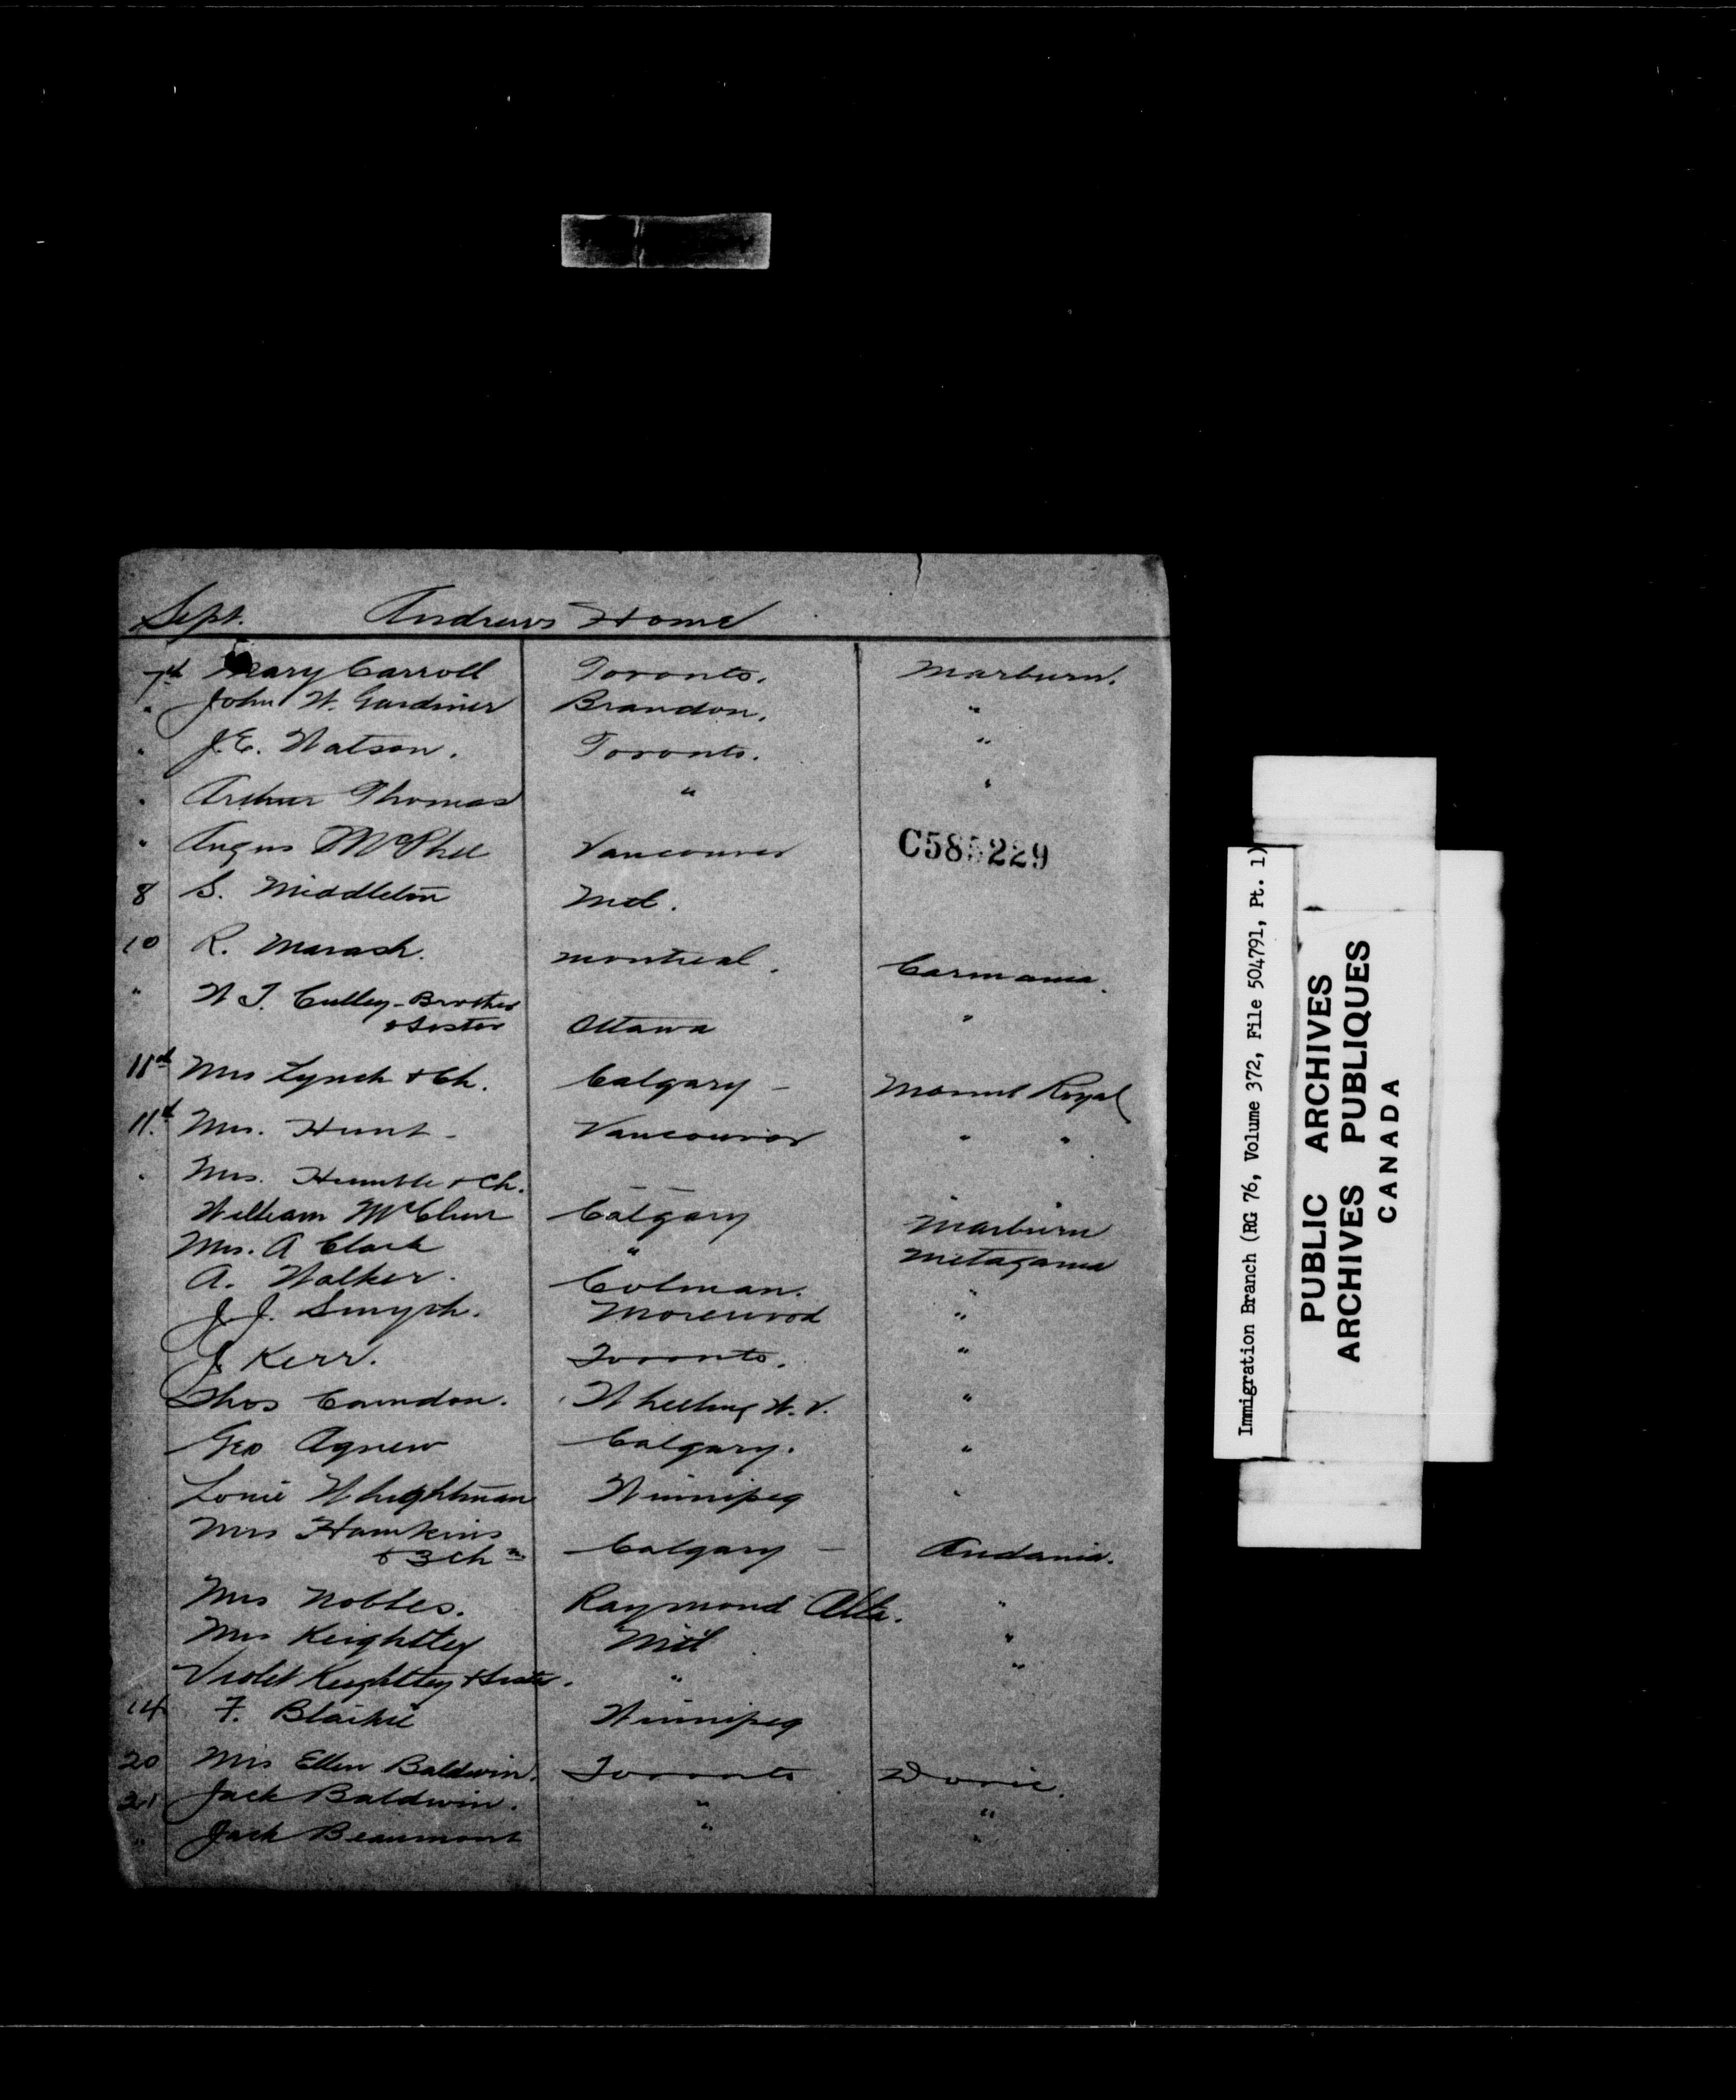 Sept. Andrews Home
7th Mary Carroll Toronto. Marburn.
" John W. Gardiner Brandon. "
" J.E. Watson. Toronto. "
" Arthur Thomas " "
" Angus McPhee Vancouver C585229
8 S. Middleton Mtl.
10 R. Marash. Montreal. Carmania.
" W J. Culley - Brother
& Sister Ottawa "
11th Mrs Lynch & Ch. Calgary - Mount Royal
11th Mrs. Hunt - Vancouver " "
" Mrs. Humble & Ch. — —
William McClure Calgary Marburn
Mrs. A Clark " Metagama
A. Walker. Colman. "
J.J. Smyth. Morewood "
J. Kerr. Toronto. "
Thos Wheeling W.V. "
Geo Agnew Calgary. "
Winnipeg "
Mrs Hawkins
& 3 chn Calgary - Andania.
Mrs Nobles. Raymond Alta. "
Mrs Keightley Mtl "
Violet Keightley & Sister. " "
14 F. Blaikie Winnipeg
20 Mrs Ellen Baldwin. Toronto Doric.
21 Jack Baldwin. " "
" Jack Beaumont " "
Immigration Branch (RG 76, Volume 372, File 504791, Pt. 1)
PUBLIC ARCHIVES
ARCHIVES PUBLIQUES
CANADA